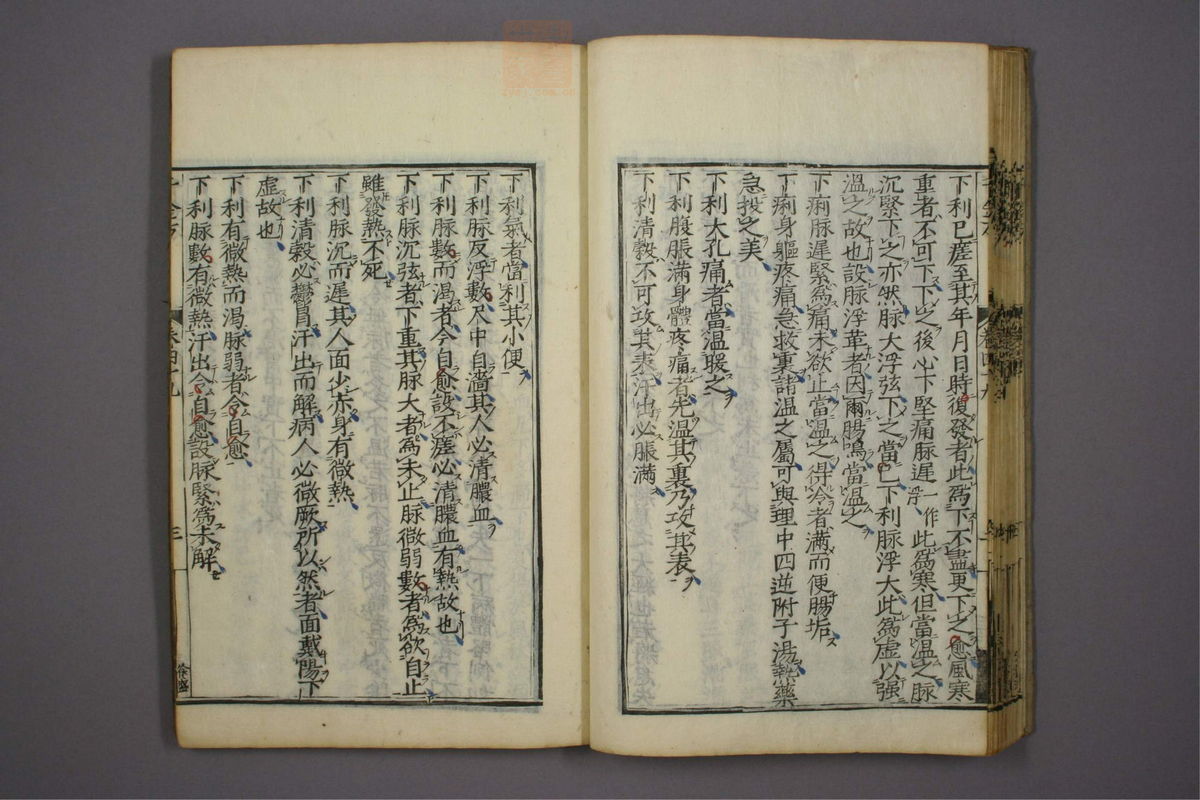 下利已瘥至其年月日時復發者此爲下不盡更下之愈風寒
重者不可下下之後心下堅痛脉遲一作浮此爲寒但當溫之脉
沉緊下之亦然脉大浮弦下之當已下利脉浮大此爲虛以强
溫之故也設脉浮革者因爾腸鳴當溫之
下痢脉遲緊爲痛未欲止當溫之得冷者滿而便腸垢
下痢身軀疼痛急救裏諸溫之屬可與理中四逆附子湯熱藥
急投之美
下利大孔痛者當溫暖之
下利腹脹滿身體疼痛者先溫其裏乃攻其表
下利清穀不可攻其表汗出必脹滿
下利氣者當利其小便
下利脉反浮數尺中自濇其人必清膿血
下利脉數而渴者令自愈設不瘥必清膿血有熱故也
下利脉沉弦者下重其脉大者爲未止脉微弱數者爲欲自止
雖發熱不死
下利脉沉而遲其人面少赤身有微熱
下利清穀必鬱冒汗出而解病人必微厥所以然者面戴陽下
虛故也
下利有微熱而渴脉弱者令自愈
下利脉數有微熱汗出令自愈設脉緊爲未解
卷四九
三